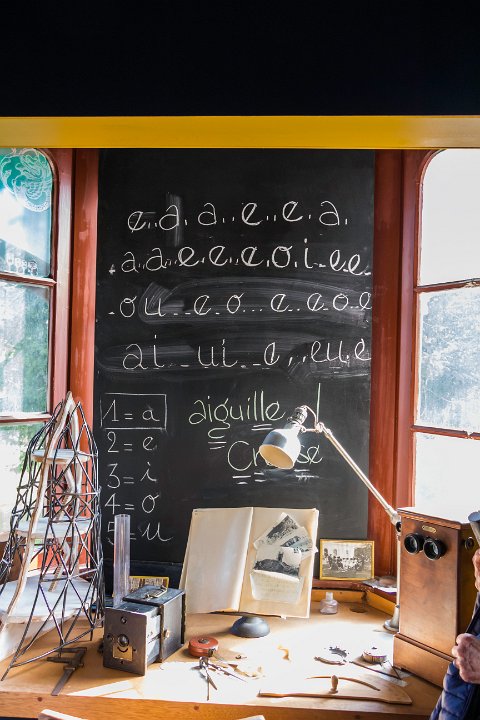 e . a . . a . . e . . e . . a .
. a . a e . e . e . e . o . i . . e . e .
. o u . . . e . . o . . . e . . e . o . e
a i . . . u i . . . e . . . e u . e
1 = a
2 = e
3 = i
4 = o
5 = u
aiguille